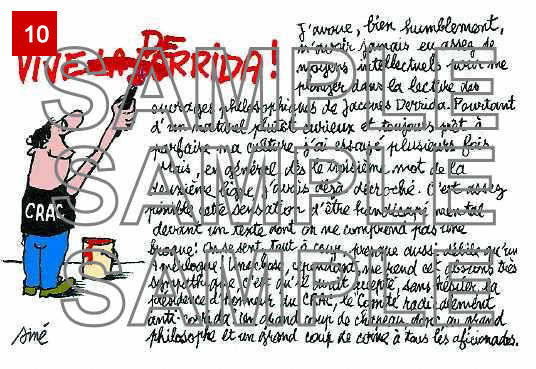 10
DE
VIVE LA CORRIDA !
CRAC
J'avoue, bien humblement,
n'avoir jamais eu assez de
moyens intellectuels pour me
plonger dans la lecture des
ouvrages philosophiques de Jacques Derrida. Pourtant
d'un naturel plutôt curieux et toujours prêt à
parfaire ma culture, j'ai essayé plusieurs fois
Mais, en général dès le troisième mot de la
deuxième ligne j'avais déjà décroché. C'est assez
pénible cette sensation d'être handicapé mental
devant un texte dont on ne comprend pas une
broque! On se sent tout à coup, presque aussi débile qu'un
Une chose, pourtant, me rend cet abscons très
sympathique c'est qu'il avait accepté, sans hésiter, la
présidence d'honneur du CRAC, le Comité radicalement
anti-corrida. Un grand coup de chapeau donc au grand
philosophe et un grand coup de corne à tous les aficionados.
Siné
SAMPLE
SAMPLE
SAMPLE